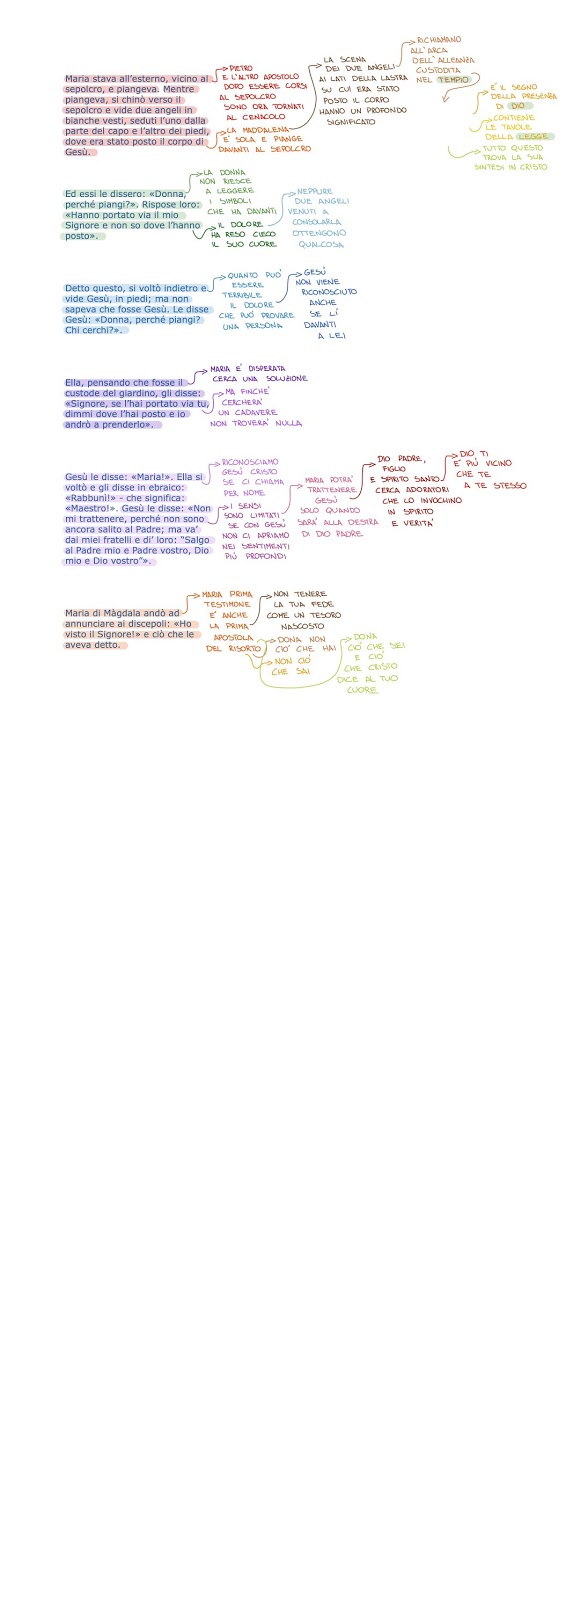 Maria stava all'esterno, vicino al
sepolcro, e piangeva. Mentre
piangeva, si chinò verso il
sepolcro e vide due angeli in
bianche vesti, seduti l'uno dalla
parte del capo e l'altro dei piedi,
dove era stato posto il corpo di
Gesù.
PIETRO
E L'ALTRO APOSTOLO
DOPO ESSERE CORSI
AL SEPOLCRO
SONO ORA TORNATI
AL CENACOLO
LA MADDALENA
E' SOLA E PIANGE
DAVANTI AL SEPOLCRO
LA SCENA
DEI DUE ANGELI
AI LATI DELLA LASTRA
SU CUI ERA STATO
POSTO IL CORPO
HANNO UN PROFONDO
SIGNIFICATO
RICHIAMANO
ALL'ARCA
DELL'ALLEANZA
CUSTODITA
NEL TEMPIO
E' IL SEGNO
DELLA PRESENZA
DI DIO
CONTIENE
LE TAVOLE
DELLA LEGGE
TUTTO QUESTO
TROVA LA SUA
SINTESI IN CRISTO
Ed essi le dissero: «Donna,
perché piangi?». Rispose loro:
«Hanno portato via il mio
Signore e non so dove l'hanno
posto».
LA DONNA
NON RIESCE
A LEGGERE
I SIMBOLI
CHE HA DAVANTI
IL DOLORE
HA RESO CIECO
IL SUO CUORE
NEPPURE
DUE ANGELI
VENUTI A
CONSOLARLA
OTTENGONO
QUALCOSA
Detto questo, si voltò indietro e
vide Gesù, in piedi; ma non
sapeva che fosse Gesù. Le disse
Gesù: «Donna, perché piangi?
Chi cerchi?».
QUANTO PUO'
ESSERE
TERRIBILE
IL DOLORE
CHE PUÒ PROVARE
UNA PERSONA
GESÙ
NON VIENE
RICONOSCIUTO
ANCHE
SE LÌ
DAVANTI
A LEI
Ella, pensando che fosse il
custode del giardino, gli disse:
«Signore, se l'hai portato via tu,
dimmi dove l'hai posto e io
andrò a prenderlo».
MARIA E' DISPERATA
CERCA UNA SOLUZIONE
MA FINCHE'
CERCHERA'
UN CADAVERE
NON TROVERA' NULLA
Gesù le disse: «Maria!». Ella si
voltò e gli disse in ebraico:
«Rabbunì!» - che significa:
«Maestro!». Gesù le disse: «Non
mi trattenere, perché non sono
ancora salito al Padre; ma va'
dai miei fratelli e di' loro: "Salgo
al Padre mio e Padre vostro, Dio
mio e Dio vostro"».
RICONOSCIAMO
GESÙ CRISTO
SE CI CHIAMA
PER NOME
I SENSI
SONO LIMITATI
SE CON GESÙ
NON CI APRIAMO
NEI SENTIMENTI
PIÙ PROFONDI
MARIA POTRA'
TRATTENERE
GESÙ
SOLO QUANDO
SARA' ALLA DESTRA
DI DIO PADRE
DIO PADRE,
FIGLIO
E SPIRITO SANTO
CERCA ADORATORI
CHE LO INVOCHINO
IN SPIRITO
E VERITA'
DIO TI
E' PIÙ VICINO
CHE TE
A TE STESSO
Maria di Màgdala andò ad
annunciare ai discepoli: «Ho
visto il Signore!» e ciò che le
aveva detto.
MARIA PRIMA
TESTIMONE
E' ANCHE
LA PRIMA
APOSTOLA
DEL RISORTO
NON TENERE
LA TUA FEDE
COME UN TESORO
NASCOSTO
DONA NON
CIO' CHE HAI
NON CIO'
CHE SAI
DONA
CIO' CHE SEI
E CIO'
CHE CRISTO
DICE AL TUO
CUORE